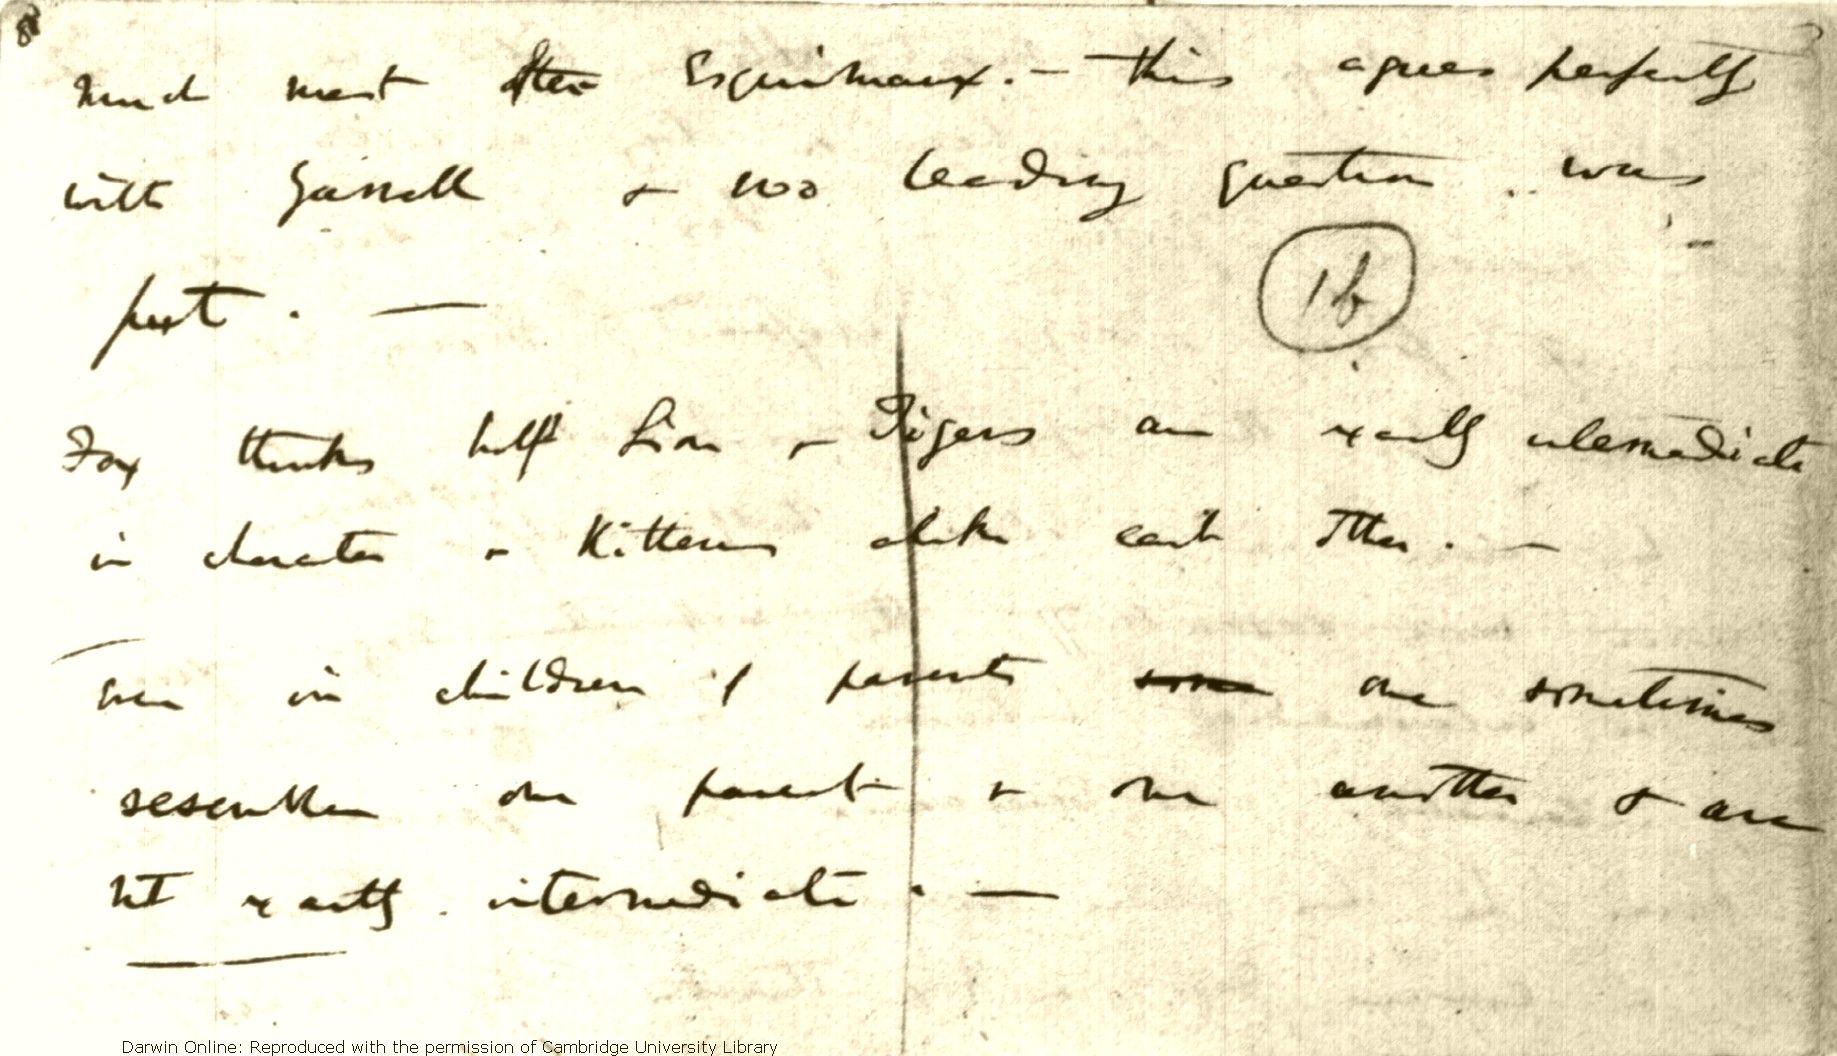 much most after Esquimaux. — This agrees perfectly
with Yarrell & no leading question was
put. —
16
Fox thinks half Lion & Tigers are exactly intermediate
in character & Kittens alike each other. —
even in children of parents some one sometimes
resembles one parent & one another & are
not exactly intermediate. —
Darwin Online: Reproduced with the permission of Cambridge University Library